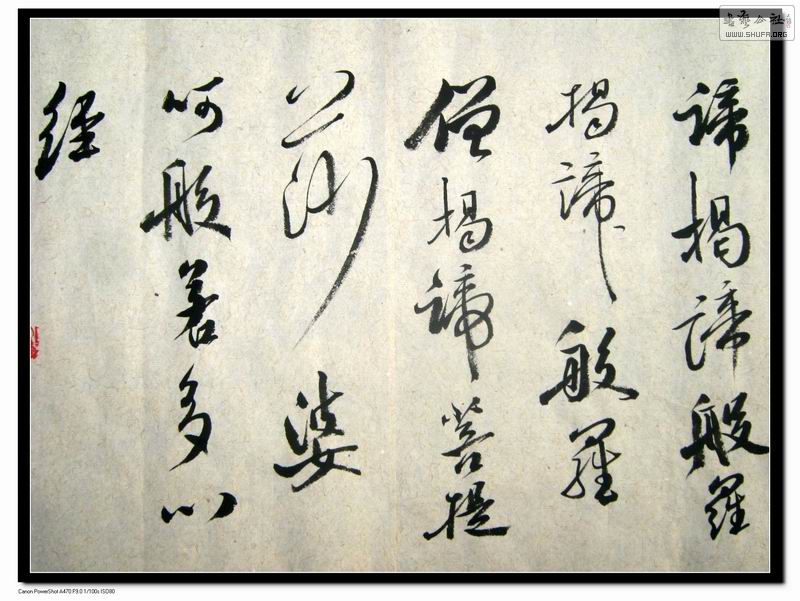 諦揭諦般羅
揭諦般羅
僧揭諦菩提
莎婆
呵般若多心
經
書藝公社
WWW.SHUFA.ORG
Canon PowerShot A470 F9.0 1/100s ISO80